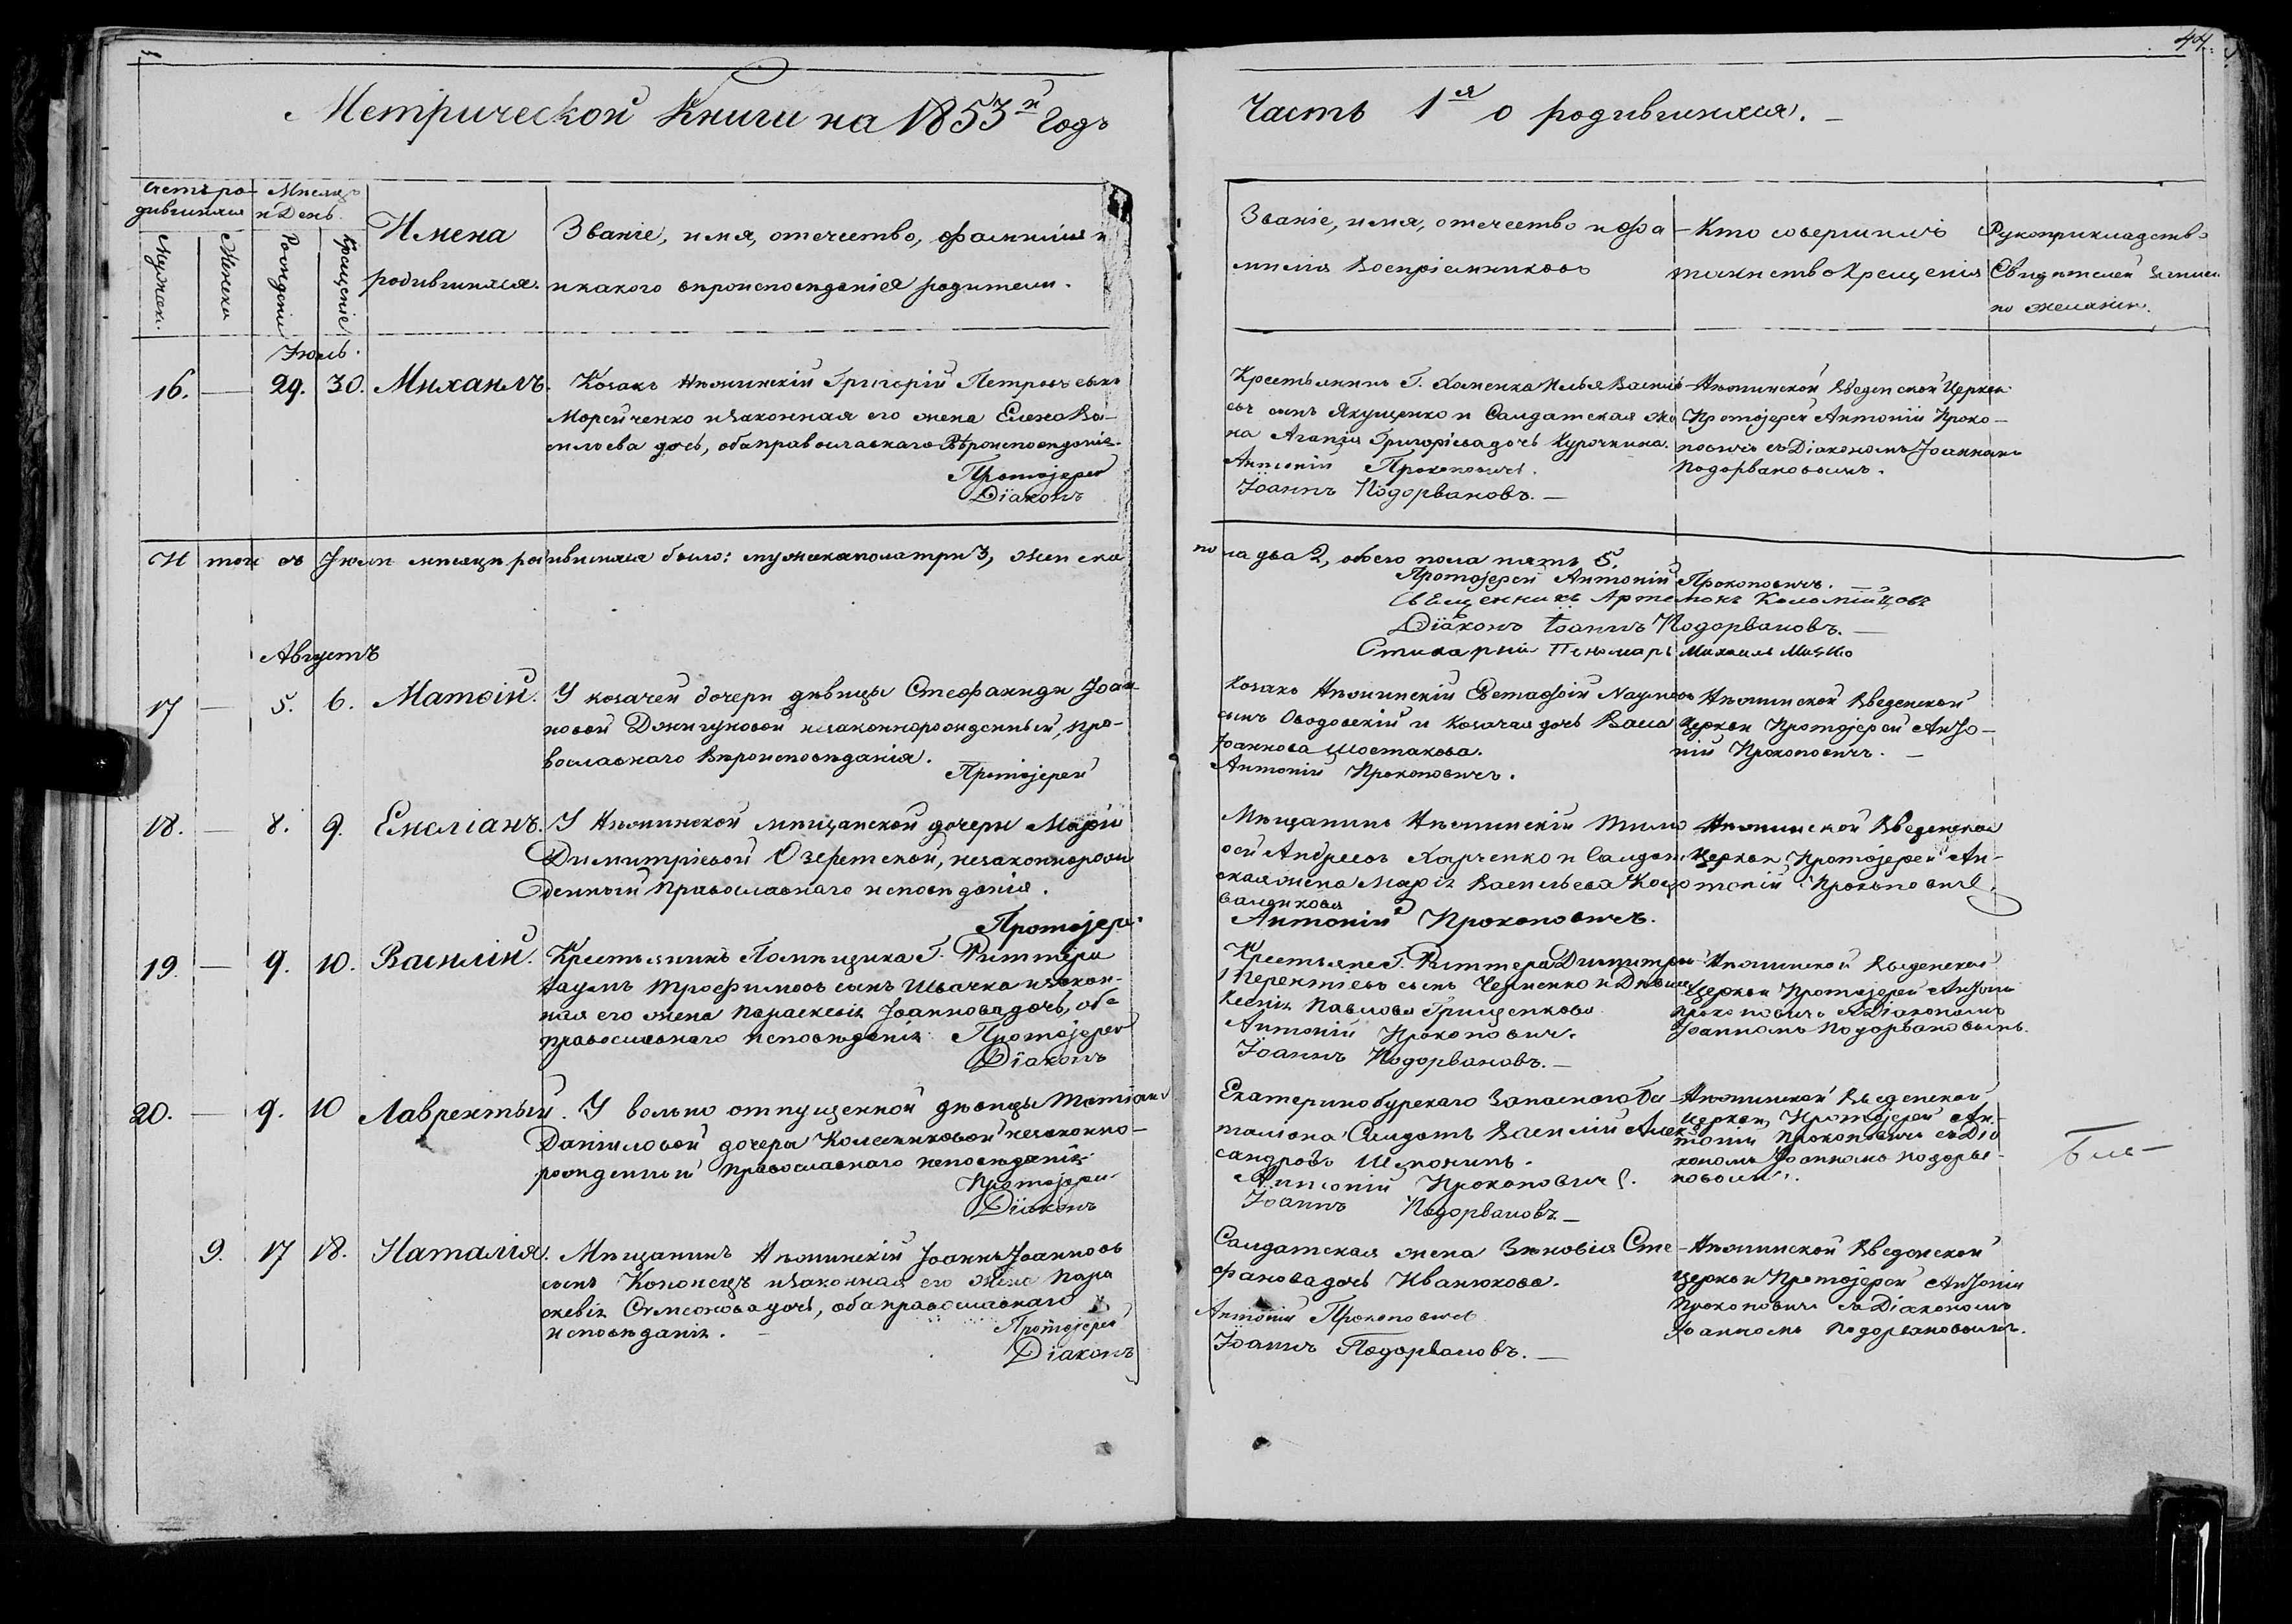 44.
Метрической Книги на 1853й Годъ
Часть 1я о родившихся.
Счетъ родившихся
Мужеск.
Женска
Мѣсяцъ и День.
Рожденія
Крещеніе
Имена
родившихся.
Званіе, имя, отечество, фамилія и
какого вѣроисповѣданія родители.
Званіе, имя, отечество и фа
милія Воспріемниковъ
Кто совершилъ
таинство Крещенія
Рукоприкладство
Свидѣтелей записи
по желанію.
Іюль.
16. — 29. 30. Михаилъ.
Козакъ Нѣжинскій Григорій Петровъ сынъ
Морейченко и законная его жена Елена Ва-
сильева дочь, оба православнаго Вѣроисповѣданія.
Протоіерей
Діаконъ
Крестьянинъ Г. Илья Василь
евъ сынъ Якущенко и Солдатская же
на Агапія Григоріева дочь Курочкина.
Антоній Прокоповичъ.
Іоаннъ Подорвановъ. —
Нѣжинской Введенской Церкви
Протоіерей Антоній Проко-
повичъ съ Діакономъ Іоанномъ
Подорвановымъ.
Итого въ Іюлѣ мѣсяцѣ родившихся было: мужска пола три 3, женска
пола два 2, обоего пола пять 5.
Протоіерей Антоній Прокоповичъ.
Священникъ Артемонъ Коломійцовъ
Діаконъ Іоаннъ Подорвановъ. —
Стихарный Пономарь Михаилъ
Августъ
17 — 5. 6. Матѳій.
У козачей дочери дѣвицы Стефаниды Іоан-
новой незаконнорожденный, пра-
вославнаго Вѣроисповѣданія.
Протоіерей
Козакъ Нѣжинскій Евстафій Наумовъ
сынъ Ободовскій и козачая дочь Васса
Іоаннова Шостакова.
Антоній Прокоповичъ.
Нѣжинской Введенской
Церкви Протоіерей Анто-
ній Прокоповичъ. —
18. — 8. 9. Емеліанъ.
У Нѣжинской мѣщанской дочери Маріи
Димитріевой Озеретской, незаконнорож
денный Православнаго исповѣданія.
Протоіерей
Мѣщанинъ Нѣжинскій Тимо
ѳей Андреевъ Харченко и Солдат
ская жена Марія Васильева
Антоній Прокоповичъ.
Нѣжинской Введенской
Церкви Протоіерей Ан-
тоній Прокоповичъ.
19. — 9. 10. Василій.
Крестьянинъ Помѣщика Г. Риттера
Наумъ Трофимовъ сынъ Швачка и закон-
ная его жена Параскевія Іоаннова дочь, оба
православнаго исповѣданія
Протоіерей
Діаконъ
Крестьяне Г. Риттера Димитрій
Терентіевъ сынъ Черненко и Дѣвица
Ксенія Павлова Грищенкова
Антоній Прокоповичъ.
Іоаннъ Подорвановъ. —
Нѣжинской Введенской
Церкви Протоіерей Антоній
Прокоповичъ съ Діакономъ
Іоанномъ Подорвановымъ.
20. — 9. 10 Лаврентый.
У вольно отпущенной дѣвицы Татіаны
Даніиловой дочери Колесниковой незаконно-
рожденный Православнаго исповѣданія
Протоіерей
Діаконъ
Екатеринобургскаго Запаснаго Ба
таліона Солдатъ Василій Алек
сандровъ
Антоній Прокоповичъ.
Іоаннъ Подорвановъ. —
Нѣжинской Введенской
Церкви Протоіерей Ан-
тоній Прокоповичъ съ Діа
кономъ Іоанномъ Подорва-
новымъ.
9. 17 18. Наталія.
Мѣщанинъ Нѣжинскій Іоаннъ Іоанновъ
сынъ Кононецъ и законная его жена Пара
скевія Симеонова дочь, оба православнаго
исповѣданія. —
Протоіерей
Діаконъ
Солдатская жена Зиновія Сте
фанова дочь Иванюкова.
Антоній Прокоповичъ
Іоаннъ Подорвановъ. —
Нѣжинской Введенской
Церкви Протоіерей Антоній
Прокоповичъ съ Діакономъ
Іоанномъ Подорвановымъ.